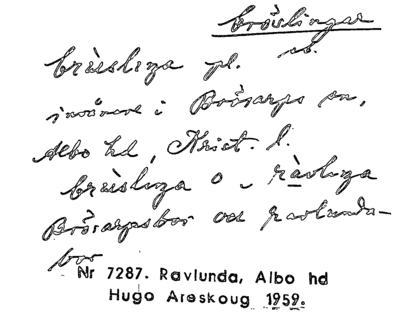 bröslingar
sb.
brüsliŋa pl.
invånare i Brösarps sn,
Albo hd, Krist. l.
brüsliŋa o ravluŋa
Brösarpsbor och ravlunda-
bor
Nr 7287. Ravlunda, Albo hd
Hugo Areskoug 1959.